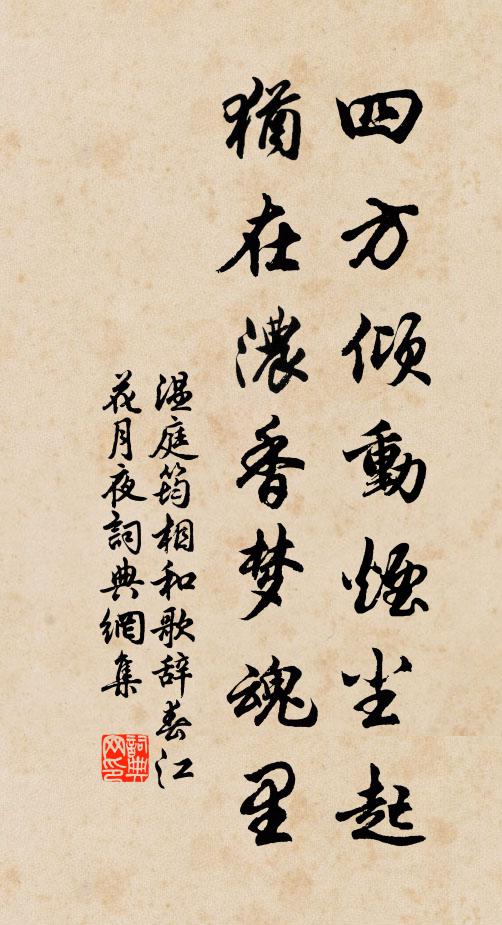 四方傾動煙尘起
猶在濃香梦魂里
温庭筠相和歌辞春江
花月夜詞典網集
詞典
网印